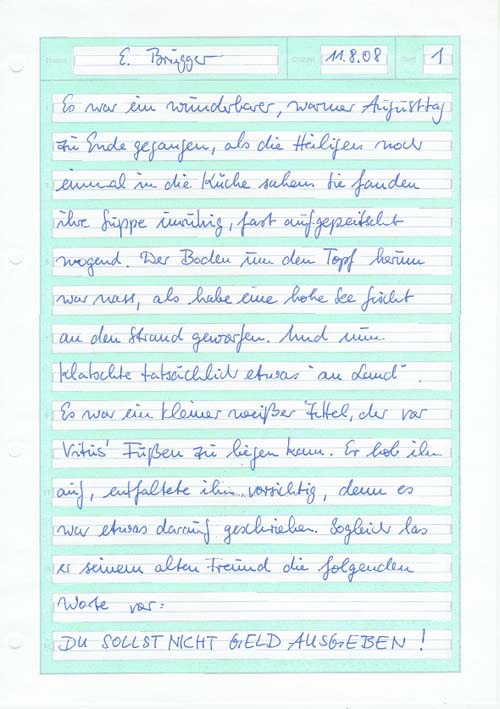 Name E. Brugger Datum 11.8.08 Seite 1
Es war ein wunderbarer, warmer Augusttag
zu Ende gegangen, als die Heiligen noch
einmal in die Küche sahen. Sie fanden
ihre Suppe unruhig, fast aufgepeitscht
wogend. Der Boden um den Topf herum
war nass, als habe eine hohe See Gischt
an den Strand geworfen. Und nun
klatschte tatsächlich etwas "an Land".
Es war ein kleiner weißer Zettel, der vor
Vitus' Füßen zu liegen kam. Er hob ihn
auf, entfaltete ihn vorsichtig, denn es
war etwas darauf geschrieben. Sogleich las
er seinem alten Freund die folgenden
Worte vor:
DU SOLLST NICHT GELD AUSGEBEN !